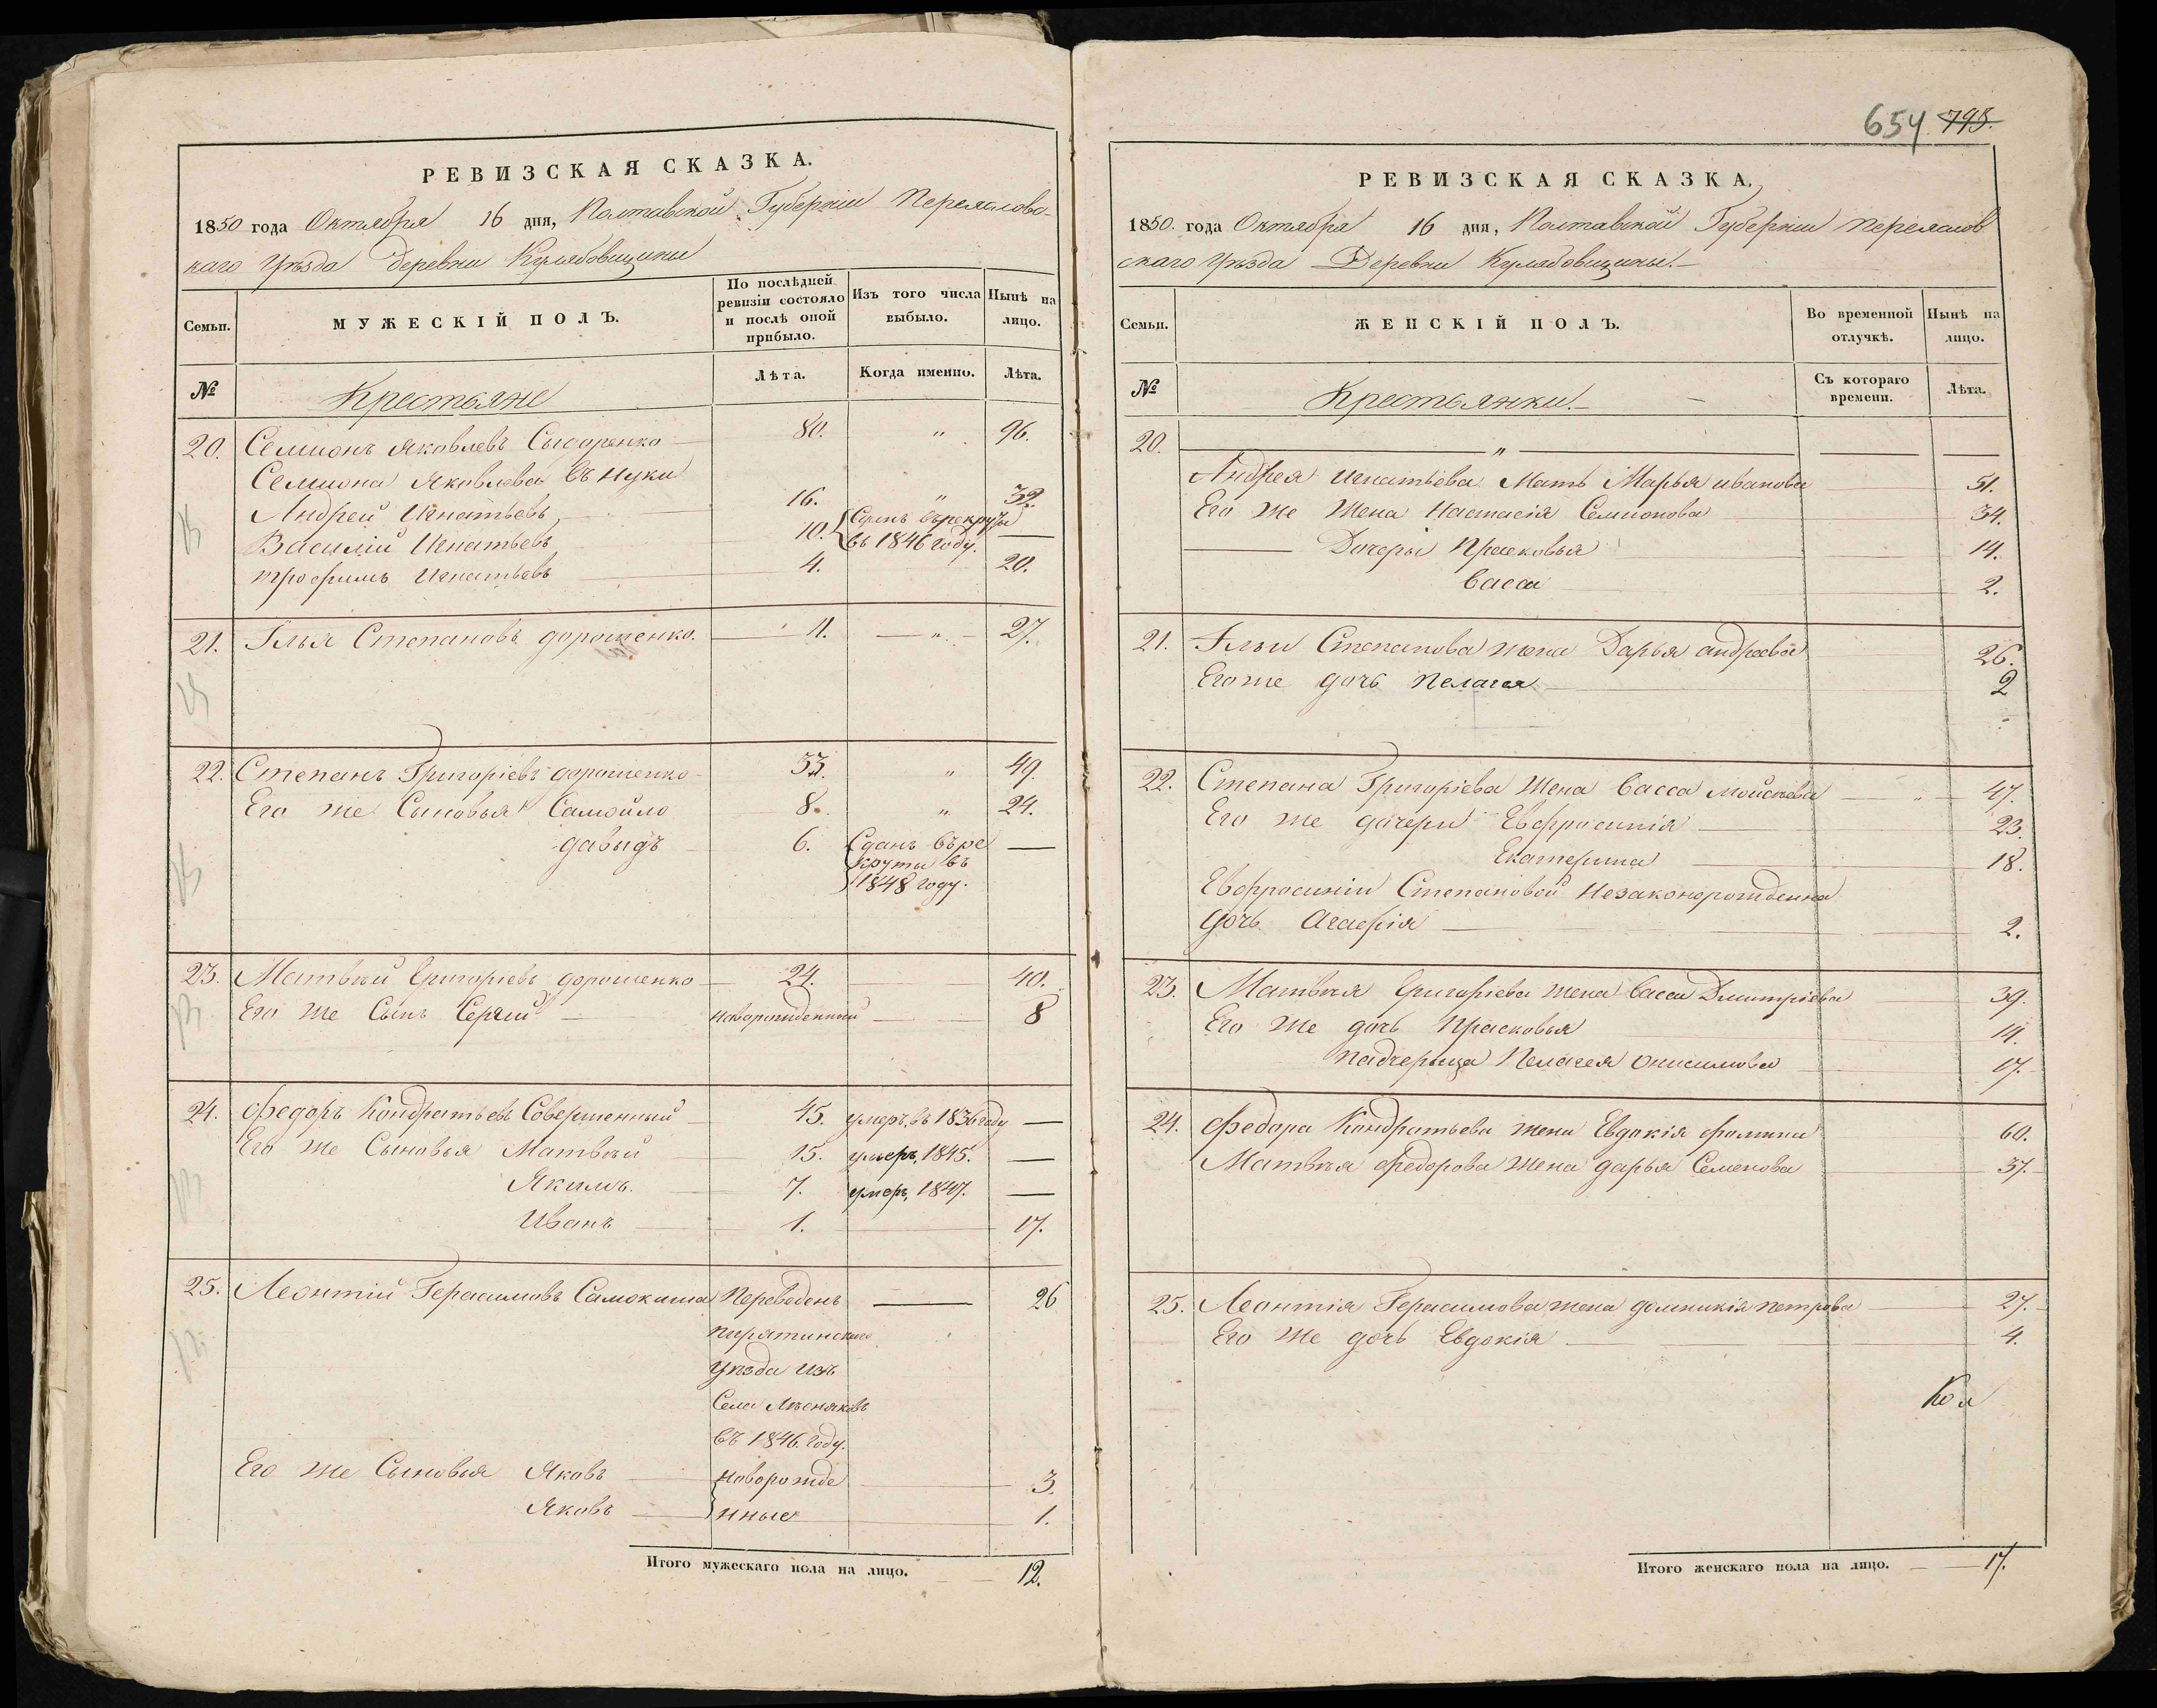 РЕВИЗСКАЯ СКАЗКА.
1850 года Октября 16 дня, Полтавской Губерніи Переяловс-
каго Уѣзда Деревни Кулябовщины
Семьи.
МУЖЕСКІЙ ПОЛЪ.
По послѣдней ревизіи состояло и послѣ оной прибыло.
Изъ того числа выбыло.
Нынѣ на лицо.
№
Крестьяне
Лѣта.
Когда именно.
Лѣта.
20. Семионъ Яковлевъ Сыдоренко 80. " 96.
Семиона Яковлева въ нуки
Андрей Игнатьевъ 16. " 32.
Василій Игнатьевъ 10. Сданъ върекруты
въ 1846 году. —
трофимъ Игнатьевъ 4. 20.
21. Ілья Степановъ дорошенко. 11. " 27.
22. Степанъ Григоріевъ дорошенко 33. " 49.
Его же Сыновья Самойло 8. " 24.
давыдъ 6. Сданъ въре —
круты въ
1848 году.
23. Матвѣй Григоріевъ дорошенко 24. 40.
Его же Сынъ Сергій новорожденный 8
24. Федоръ Кондратьевъ Совершенный 45. умеръ, въ 1836 году —
Его же Сыновья Матвѣй 15. умеръ, 1845. —
Якимъ. 7. умеръ, 1847. —
Иванъ 1. 17.
25. Леонтій Герасимовъ Самокиша Переведенъ — 26
пирятинскаго
уѣзда изъ
Села
въ 1846. году.
Его же Сыновья Яковъ новорожде 3.
Яковъ нные 1.
Итого мужескаго пола на лицо. 12.
654 795.
РЕВИЗСКАЯ СКАЗКА.
1850. года Октября 16 дня, Полтавской Губерніи Переяслов
скаго Уѣзда Деревни Кулябовщины.
Семьи.
ЖЕНСКІЙ ПОЛЪ.
Во временной отлучкѣ.
Нынѣ на лицо.
№
Крестьянки.
Съ котораго времени.
Лѣта.
20. — " —
Андрея Игнатьева Мать Марья иванова 51.
Его же Жена Настасія Семионова 34.
Дочеры Прасковья 14.
Васса 2.
21. Ільи Степанова жена Дарья андреева 26.
Его же дочь Пелагея 2
22. Степана Григоріева Жена Васса Мойсѣева " 47.
Его же дочери Евфросинія 23.
Екатерина 18.
Евфросиніи Степановой Незаконорожденна
дочь Агафія 2.
23. Матвѣя Григоріева жена Васса Дмитріева 39.
Его же дочь Прасковья 14.
падчерыца Пелагея Онисимова 17.
24. Федора Кондратьева жена Евдокія фомина 60.
Матвѣя федорова Жена дарья Семенова 37.
25. Леонтія Герасимова жена домникія петрова 27.
Его же дочь Евдокія 4.
Итого женскаго пола на лицо. 17.